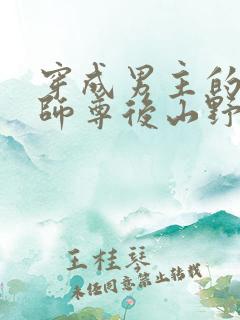 穿成男主的
師尊後山野
王桂琴
未经同意禁止转载